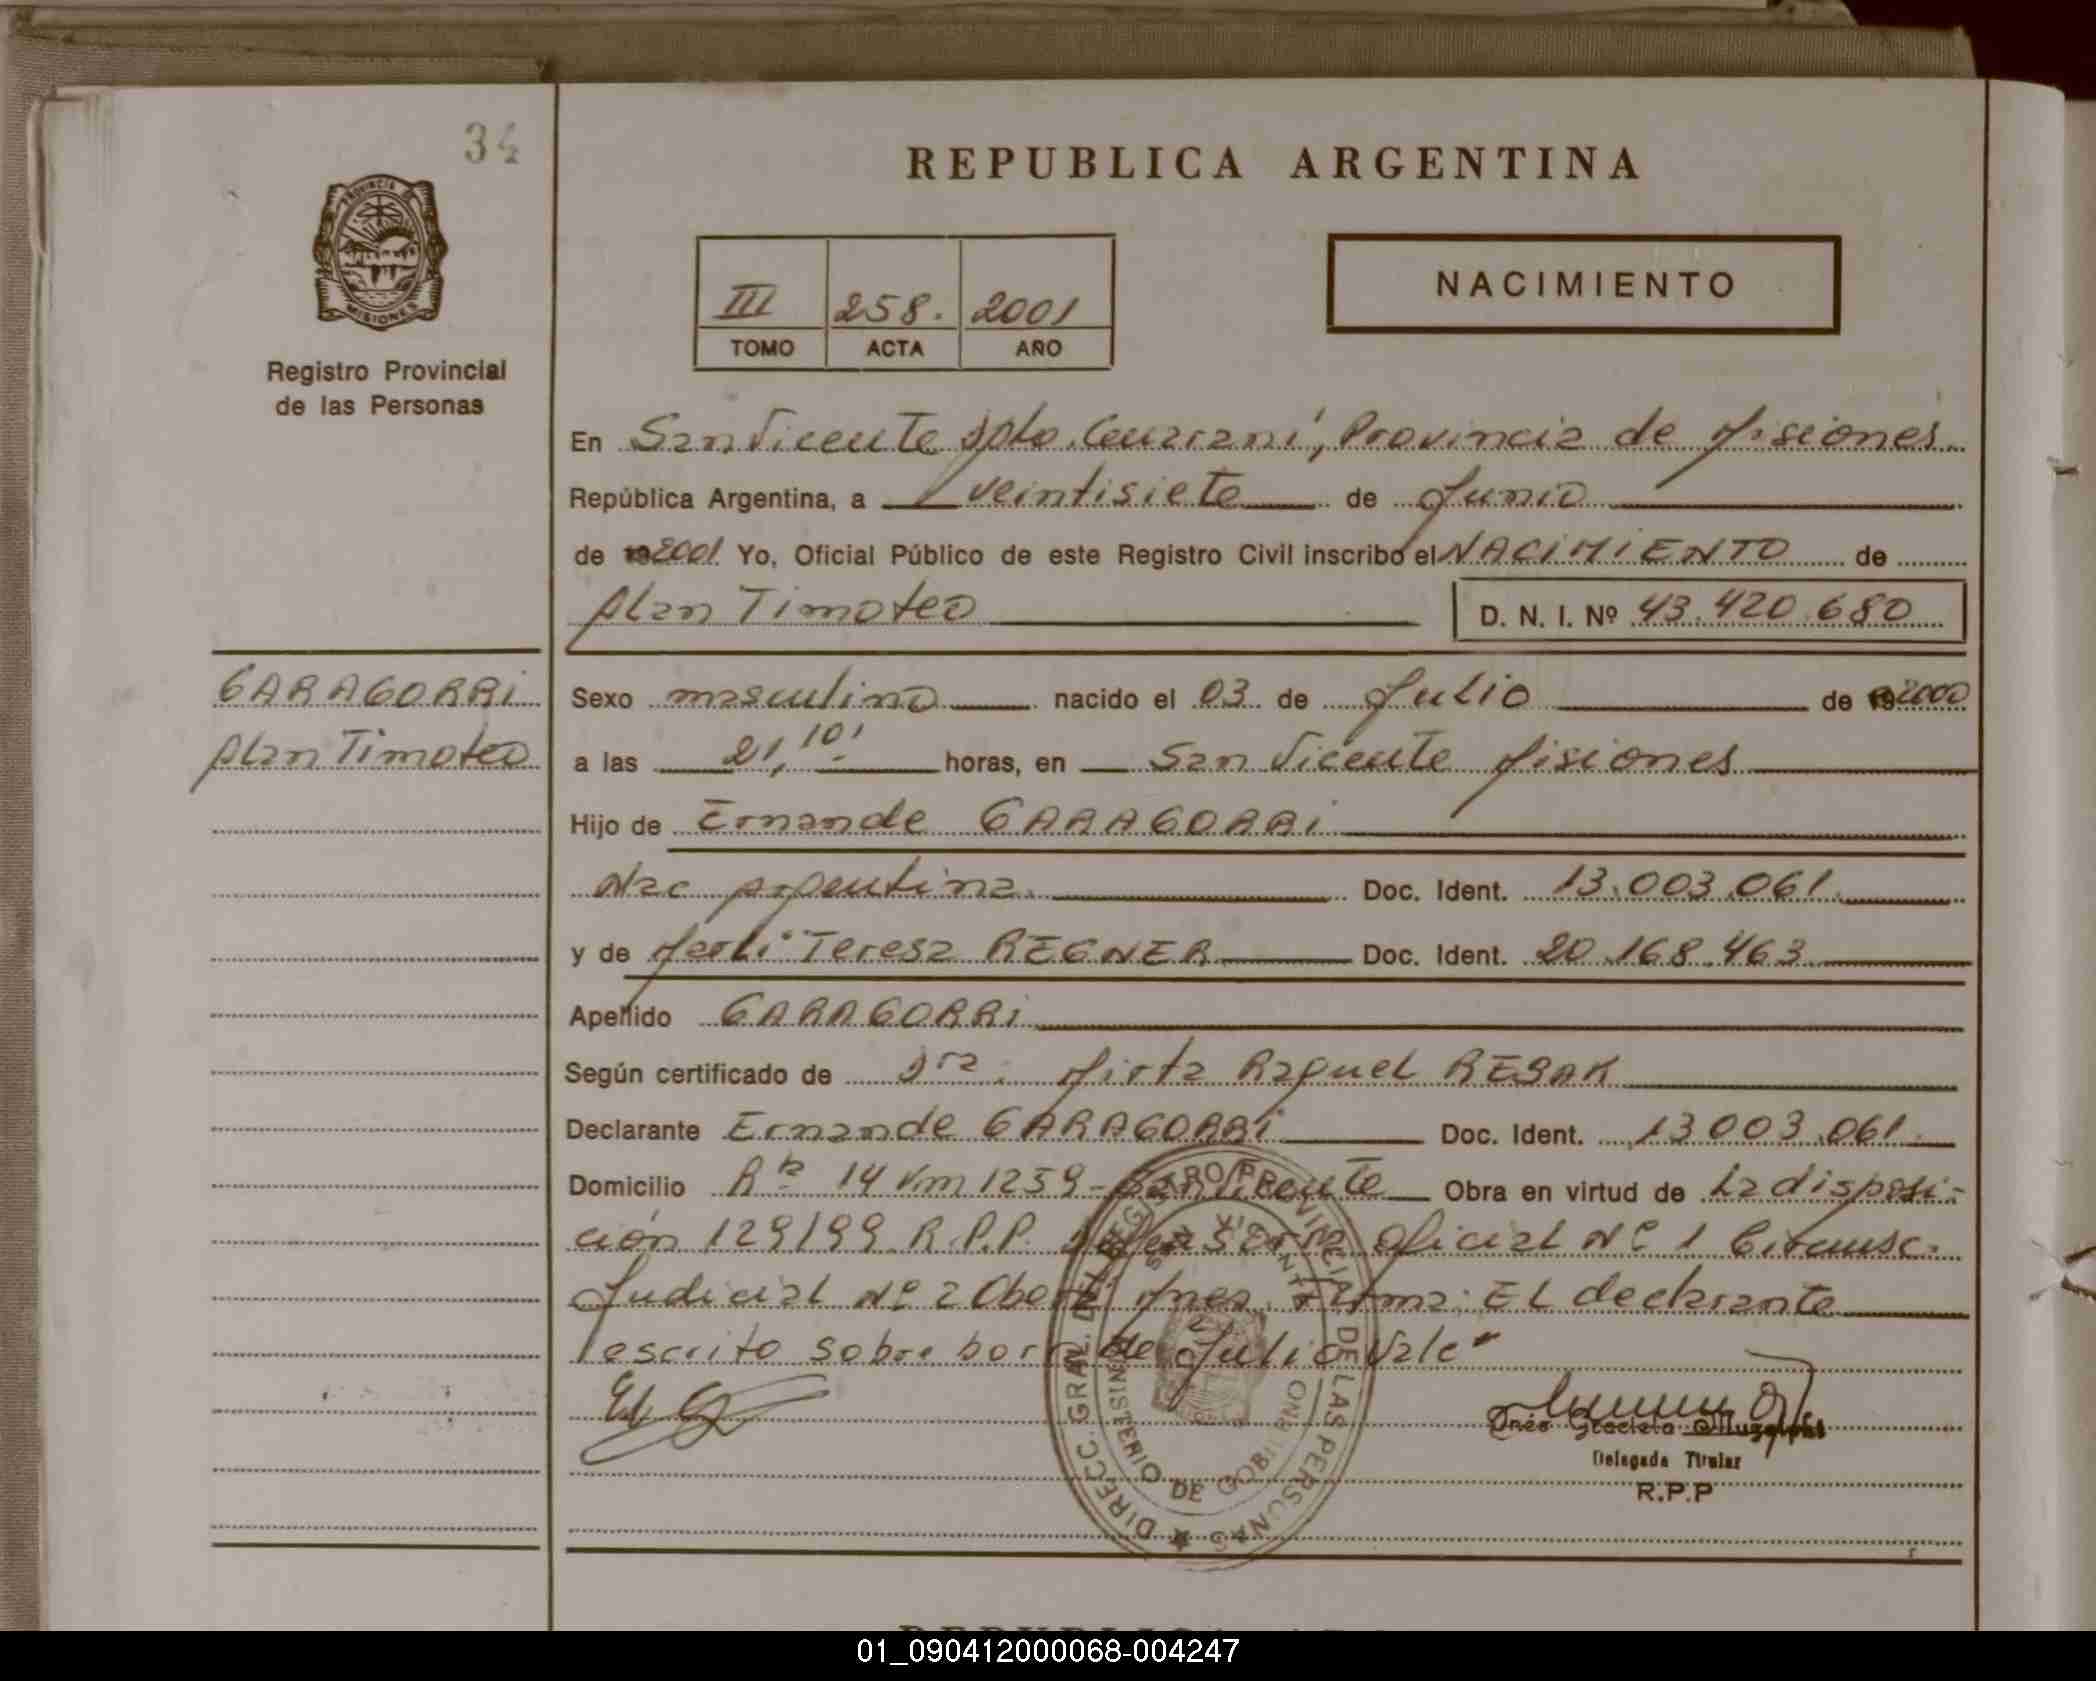 34
REPUBLICA ARGENTINA
PROVINCIA DE
MISIONES
Registro Provincial
de las Personas
III 258. 2001
TOMO ACTA AÑO
NACIMIENTO
En San Vicente Dpto. Guaraní, Provincia de Misiones
República Argentina, a veintisiete de Junio
de 192001 Yo, Oficial Público de este Registro Civil inscribo el NACIMIENTO de
Alan Timoteo D. N. I. Nº 43.420.680
GARAGORRI
Alan Timoteo
Sexo masculino nacido el 03 de Julio de 192000
a las 21,10' horas, en San Vicente Misiones
Hijo de Ernande GARAGORRI
Nac Argentina. Doc. Ident. 13.003.061
y de Merli Teresa REGNER Doc. Ident. 20.168.463
Apellido GARAGORRI
Según certificado de Dra. Mirta Raquel RESAK
Declarante Ernande GARAGORRI Doc. Ident. 13.003.061
Domicilio Rta 14 Km 1259 - San Vicente Obra en virtud de La disposi-
ción 129/99 R.P.P. Oficial Nº 1 Circunsc.
Judicial Nº 2 Oberá Mnes. Firma: El declarante
escrito sobre borrado Julio Vale"
DIRECC. GRAL. DEL REGISTRO PROVINCIAL DE LAS PERSONAS
SAN VICENTE
MINISTERIO DE GOBIERNO
Inés Graciela
Delegada Titular
R.P.P
01_090412000068-004247